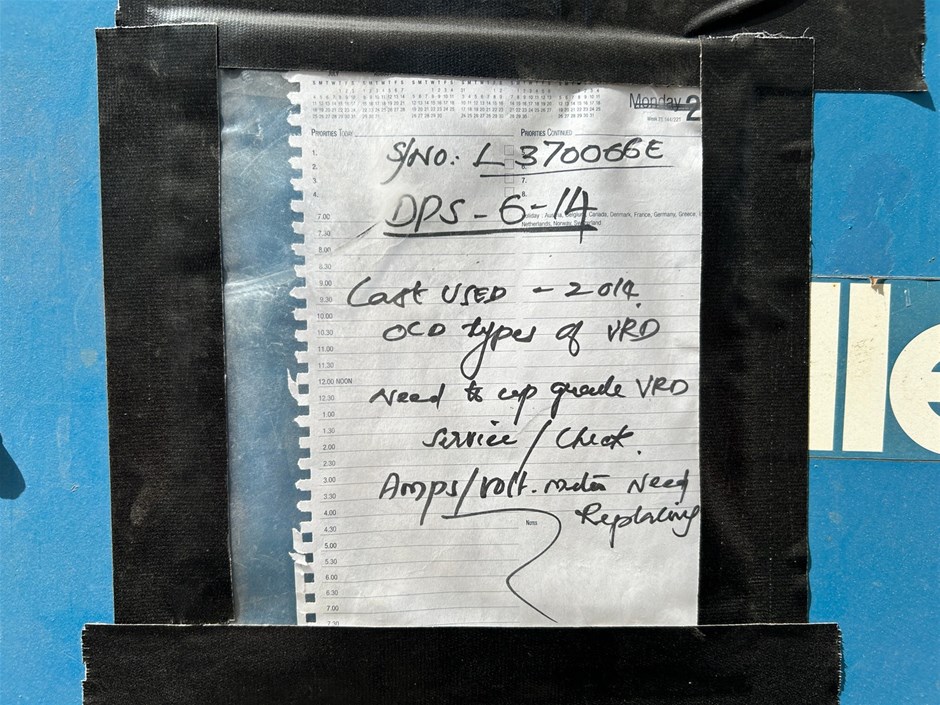 Monday 2
PRIORITIES TODAY
PRIORITIES CONTINUED
1.
2.
3.
4.
7.
8.
S/NO: L 370066E
DPS - 6 - 14
Holiday : Austria, Belgium, Canada, Denmark, France, Germany, Greece,
Netherlands, Norway, Switzerland
Last USED - 2014.
OLD types of VRD
Need to up grade VRD
Service / Check.
Amps/volt. meter Need
Replacing
7.00
7.30
8.00
8.30
9.00
9.30
10.00
10.30
11.00
11.30
12.00 NOON
12.30
1.00
1.30
2.00
2.30
3.00
3.30
4.00
4.30
5.00
5.30
6.00
6.30
7.00
7.30
NOTES
lle